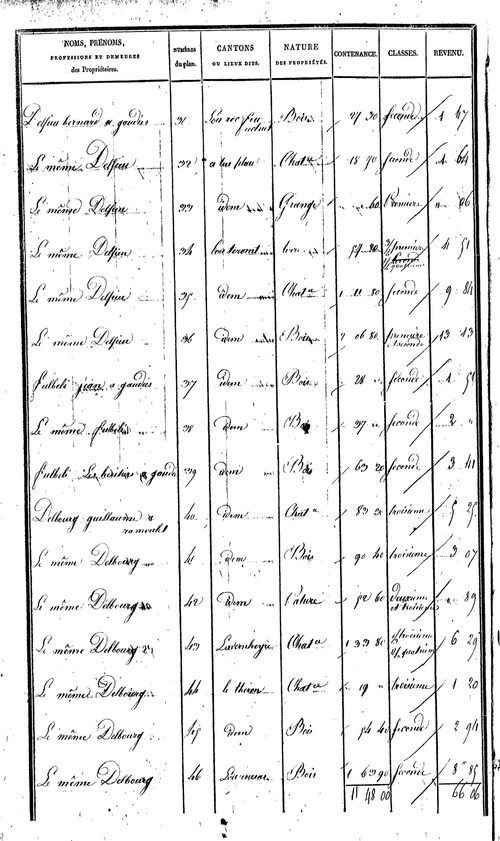 NOMS, PRÉNOMS,
PROFESSIONS ET DEMEURES
des Propriétaires.
NUMÉROS
du plan.
CANTONS
OU LIEUX DITS.
NATURE
DES PROPRIÉTÉS.
CONTENANCE.
CLASSES.
REVENU.
Delfieu bernard a gaudies 31 Bois 27 30 seconde 1 47
Le même Delfieu 32 a las plou Chat.re 18 90 seconde 1 64
Le même Delfieu 33 idem Grange 60 Première 06
Le même Delfieu 34 terre 57 80 4 51
Le même Delfieu 35 idem Chat.re 1 11 80 seconde 9 84
Le même Delfieu 36 idem Bois 2 06 80 première et seconde 13 13
fulbeli jean a gaudies 37 idem Bois 28 seconde 1 51
Le même fulbeli 38 idem Bois 37 seconde 2
fulbeli Les héritiers a gaudies 39 idem Bois 63 20 seconde 3 41
Delbourg guillaume a
ramoulet 40 idem Chat.re 83 troisième 5 25
Le même Delbourg 41 idem Bois 90 40 troisième 3 07
Le même Delbourg 42 idem Pature 52 60 deuxième et troisième 89
Le même Delbourg 43 Chat.re 1 33 80 6 29
Le même Delbourg 44 Chat.re 19 troisième 1 20
Le même Delbourg 45 idem Bois 54 40 seconde 2 94
Le même Delbourg 46 Bois 1 63 90 seconde 8 85
11 48 00 66 06